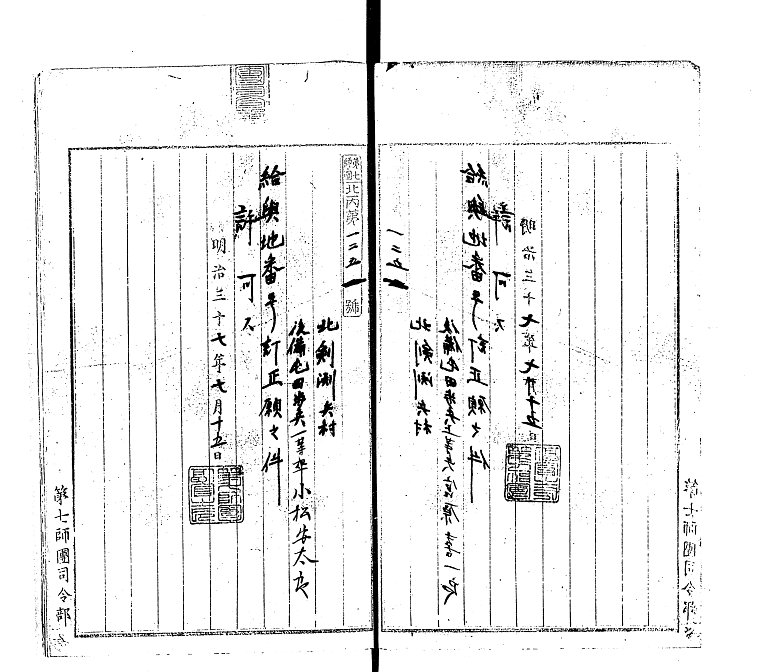 一二五
北剣淵兵村
後備屯田歩兵上等兵 原喜一郎
給與地番号訂正願之件
許可ス
明治三十七年七月十五日
第七師團司令部
北丙第一二五號
北剣淵兵村
後備屯田歩兵一等卒小松安太郎
給與地番号訂正願之件
許可ス
明治三十七年七月十五日
第七師團司令部